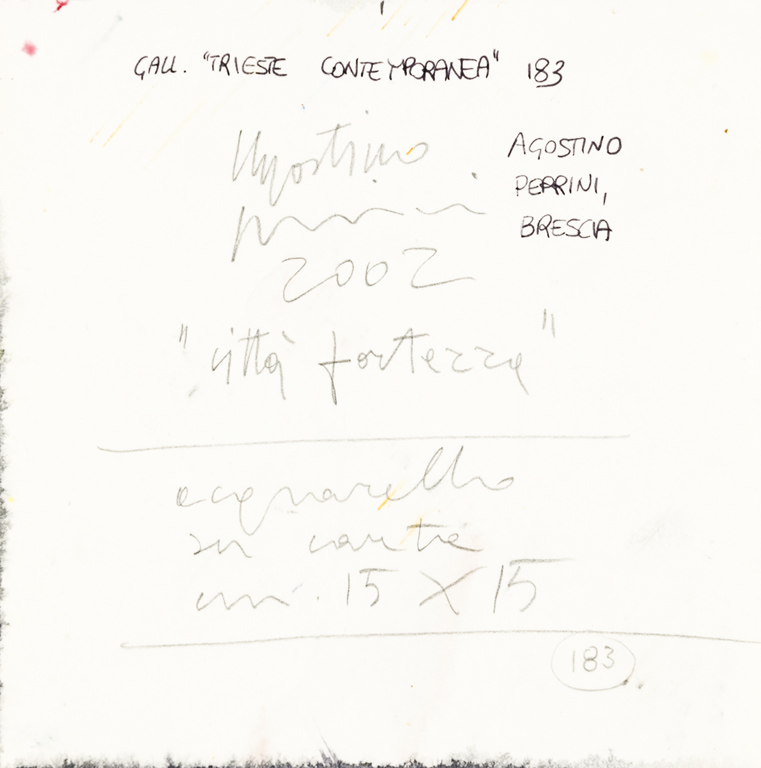 GALL. "TRIESTE CONTEMPORANEA" 183
Agostino
Perrini
2002
AGOSTINO
PERRINI,
BRESCIA
"città fortezza"
acquarello
su carta
cm. 15 X 15
183